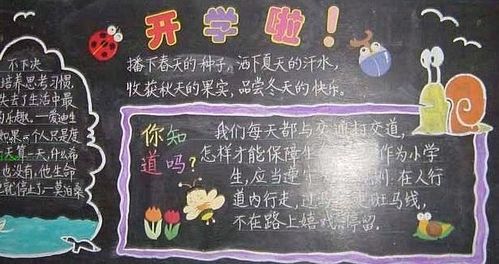 开学啦！
播下春天的种子，洒下夏天的汗水，
收获秋天的果实，品尝冬天的快乐。
不下决
培养思考习惯，
失去了生活中最
的乐趣。一爱迪生
如果一个人只是度
天算一天，什么希
也没有，他生命
就停止了一莫泊桑
你知
道吗？
我们每天都与交通打交道，
怎样才能保障生 作为小学
生，应当遵 在人行
道内行走，过 斑马线，
不在路上嬉戏 停留。